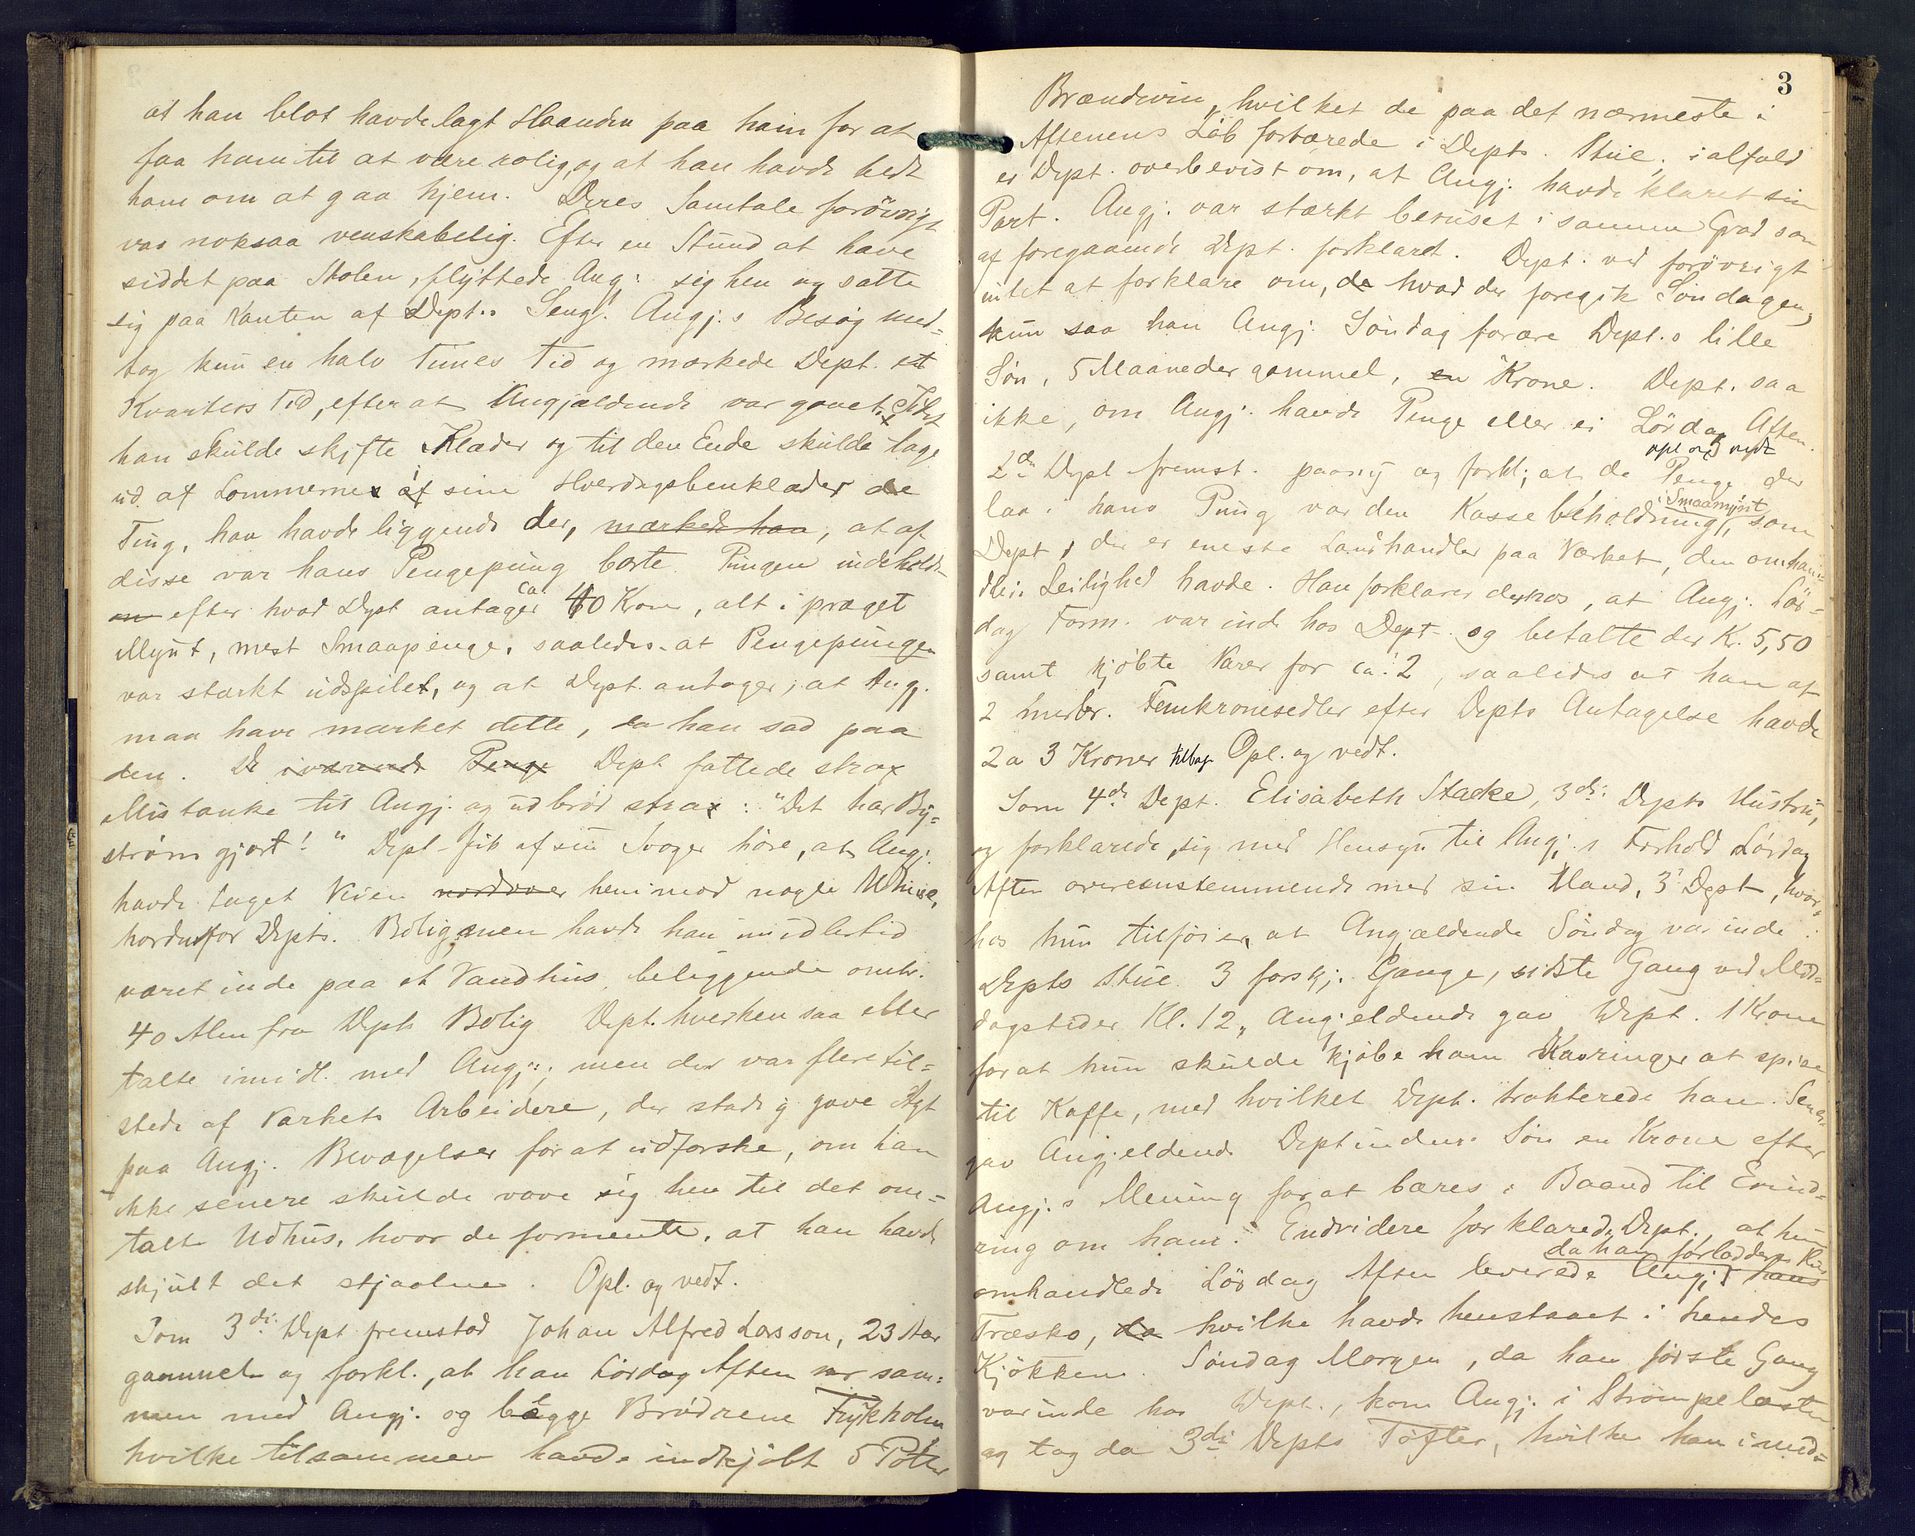 at han blot havde lagt Haanden paa ham for at
faa ham til at være rolig, og at han havde bedt
ham om at gaa hjem. Deres Samtale forøvrigt
var noksaa venskabelig. Efter en Stund at have
siddet paa Stolen, flyttede Angj. sig hen og satte
sig paa Kanten af Dept.s Seng. Angj.s Besøg med-
tog kun en halv Times Tid og mærkede Dept. et
Kvarters Tid, efter at Angjældende var gaaet,
han skulde skifte Klæder og til den Ende skulde tage
ud af Lommerne af sine Hverdagsbenklæder de
Ting, han havde liggende der, mærkede han, at af
disse var hans Pengepung borte. Pungen indeholdt
efter hvad Dept antager ca 40 Kroner, alt i præget
Mynt, mest Smaapenge, saaledes at Pengepungen
var stærkt udspilet, og at Dept. antager, at Angj.
maa have mærket dette, da han sad paa
den. De Penge Dept. fattede strax
Mistanke til Angj. og udbrød strax: "Det har By-
strøm gjort!" Dept. fik af sin Svoger høre, at Angj.
havde taget Veien nordover henimod nogle Udhuse,
nordenfor Depts. Bolig, men havde han imidlertid
været inde paa et Vandhus, beliggende omtr.
40 Alen fra Depts Bolig. Dept. hverken saa eller
talte imidl. med Angj., men der var flere til-
stede af Værkets Arbeidere, der stadig gave Agt
paa Angj. Bevægelser for at udforske, om han
ikke senere skulde vove sig hen til det om-
talte Udhus, hvor de formente, at han havde
skjult det stjaalne. Opl. og vedt.
Som 3die Dept fremstod Johan Alfred Larsson, 23 Aar
gammel og forkl., at han Lørdag Aften var sam-
men med Angj. og begge Brødrene Frykholm
hvilke tilsammen havde indkjøbt 5 Potter
3
Brændevin, hvilket de paa det nærmeste i
Aftenens Løb fortærede i Depts. Stue, ialfald
er Dept. overbevist om, at Angj. havde klaret sin
Part. Angj. var stærkt beruset i samme Grad som
af foregaaende Dept. forklaret. Dept. ved forøvrigt
intet at forklare om, de hvad der foregik Søndagen,
kun saa han Angj. Søndag forære Dept.s lille
Søn, 5 Maaneder gammel, en Krone. Dept. saa
ikke, om Angj. havde Penge eller ei Lørdag Aften.
opl og vedt
2den Dept fremst. paany og forkl., at de Penge der
i Smaamynt
laa i hans Pung var den Kassebeholdning, som
Dept, der er eneste Landhandler paa Værket, den omhan-
dlede Leilighed havde. Han forklarer derhos, at Angj. Lør-
dag Form. var inde hos Dept. og betalte der Kr. 5,50
samt kjøbte Varer for ca. 2, saaledes at han af
2 Femkronesedler efter Depts Antagelse havde
2 a 3 Kroner tilbage Opl. og vedt.
Som 4de Dept. Elisabeth Stacke, 3die Depts Hustru,
og forklarede sig med Hensyn til Angj.s Forhold Lørdag
Aften overensstemmende med sin Mand, 3' Dept, hvor-
hos hun tilføier, at Angjældende Søndag var inde i
Depts Stue 3 forskj. Gange, sidste Gang ved Mid-
dagstider Kl. 12, Angjeldende gav Dept. 1 Krone
for at hun skulde kjøbe ham Kavringer at spise
til Kaffe, med hvilket Dept. trakterede ham. Senere
gav Angjeldende Deptindens Søn en Krone efter
Angj.s Mening for at bæres i Baand til Erind-
ring om ham. Endvidere forklarede Dept., at hun
da han forlod deres Hus
omhandlede Lørdag Aften leverede Angj. hans
Træsko, da hvilke havde henstaaet i hendes
Kjøkken. Søndag Morgen, da han første Gang
var inde hos Dept., kom Angj. i Strømpelæsten
og tog da 3die Depts Tøfter, hvilke han imid-